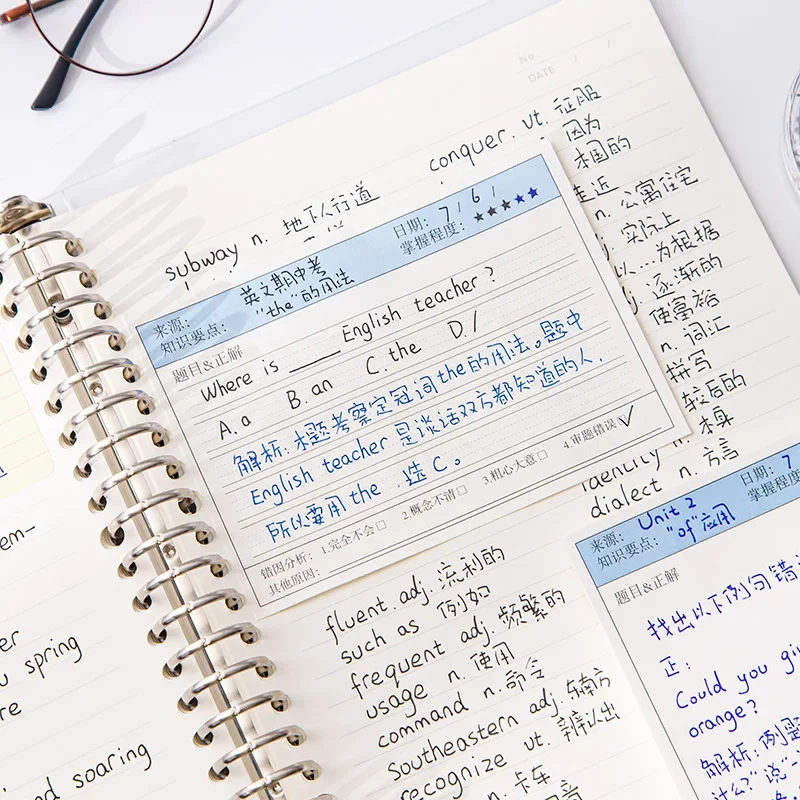 No
DATE / /
conquer. vt. 征服
因为
本国的
subway n. 地下人行道
走近
n. 公寓住宅
实际上
以...为根据
逐渐的
使富裕
n. 词汇
拼写
较后的
n. 本身
identity n.
dialect n. 方言
来源: 英文期中考
日期: 7/6/
知识要点: "the"的用法
掌握程度: ★★★★★
题目&正解
Where is ____ English teacher?
A. a B. an C. the D. /
解析: 本题考察定冠词the的用法。题中
English teacher 是谈话双方都知道的人.
所以要用 the . 选 C。
错因分析: 1.完全不会□ 2.概念不清□ 3.粗心大意□ 4.审题错误☑
其他原因:
fluent. adj. 流利的
such as 例如
frequent adj. 频繁的
usage n. 使用
command n. 命令
Southeastern adj. 东南方
recognize vt. 辨认出
n. 卡车
来源: Unit 2
日期: 7
知识要点: "of"应用
掌握程度
题目&正解
找出以下例句错
正:
Could you giv
orange?
解析: 例题
什么?"说"一
em-
er
u spring
re
nd soaring